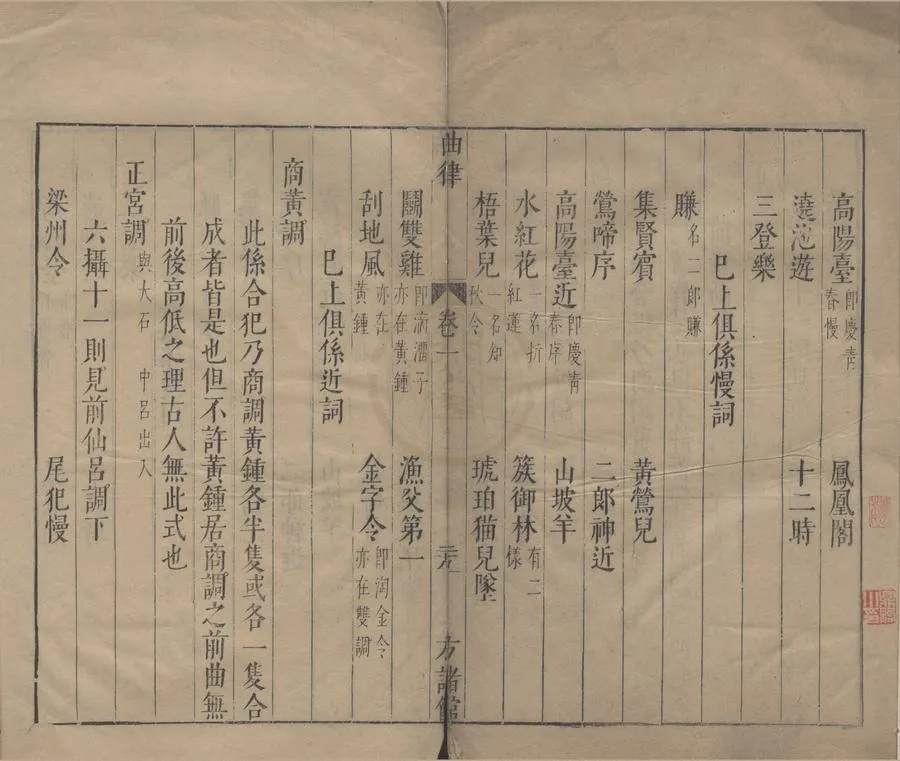 高陽臺 即慶青春慢 鳳凰閣
澆池遊 十二時
三登樂
巳上俱係慢詞
賺 名二郎賺
集賢賓 黃鶯兒
鶯啼序 二郎神近
高陽臺近 即慶青春序 山坡羊
水紅花 一名折紅蓮 簇御林 有二樣
梧葉兒 一名知秋令 琥珀猫兒墜
曲律 卷一 方諸館
鬭雙雞 即滴溜子亦在黃鍾 漁父第一
刮地風 亦在黃鍾 金字令 即淘金令亦在雙調
巳上俱係近詞
商黃調
此係合犯乃商調黃鍾各半隻或各一隻合
成者皆是也但不許黃鍾居商調之前曲無
前後高低之理古人無此式也
正宮調 與大石中呂出入
六攝十一則見前仙呂調下
梁州令 尾犯慢